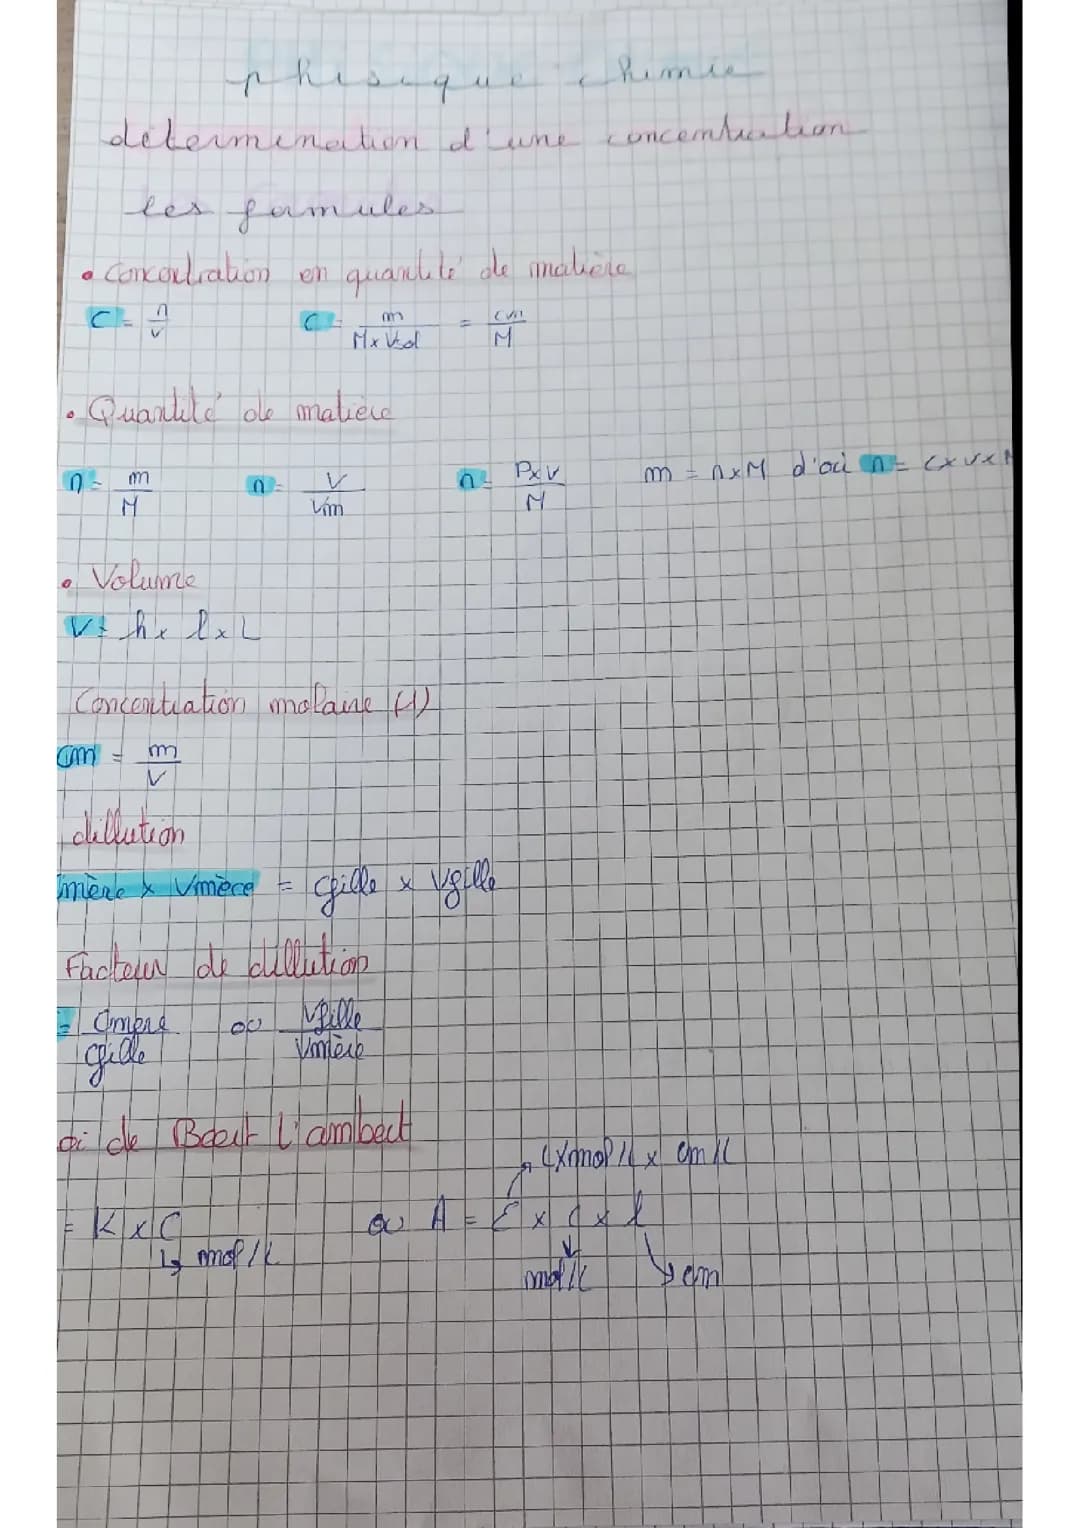 phisique chimie
détermination d'une concentration
les formules
• Concentration en quantité de matière
C = n/V C = m/(M x Vsol) = Cm/M
• Quantité de matière
n = m/M n = V/Vm n = P x V/M m = n x M d'où n = C x V x M
• Volume
V = h x l x L
Concentration molaire (1)
Cm = m/V
dillution
mère x Vmère = Cfille x Vfille
Facteur de dillution
= Cmère/Cfille ou Vfille/Vmère
oi de Beeur L'ambert
= K x C ou A = E x C x l
↳ mol/L mol/L cm